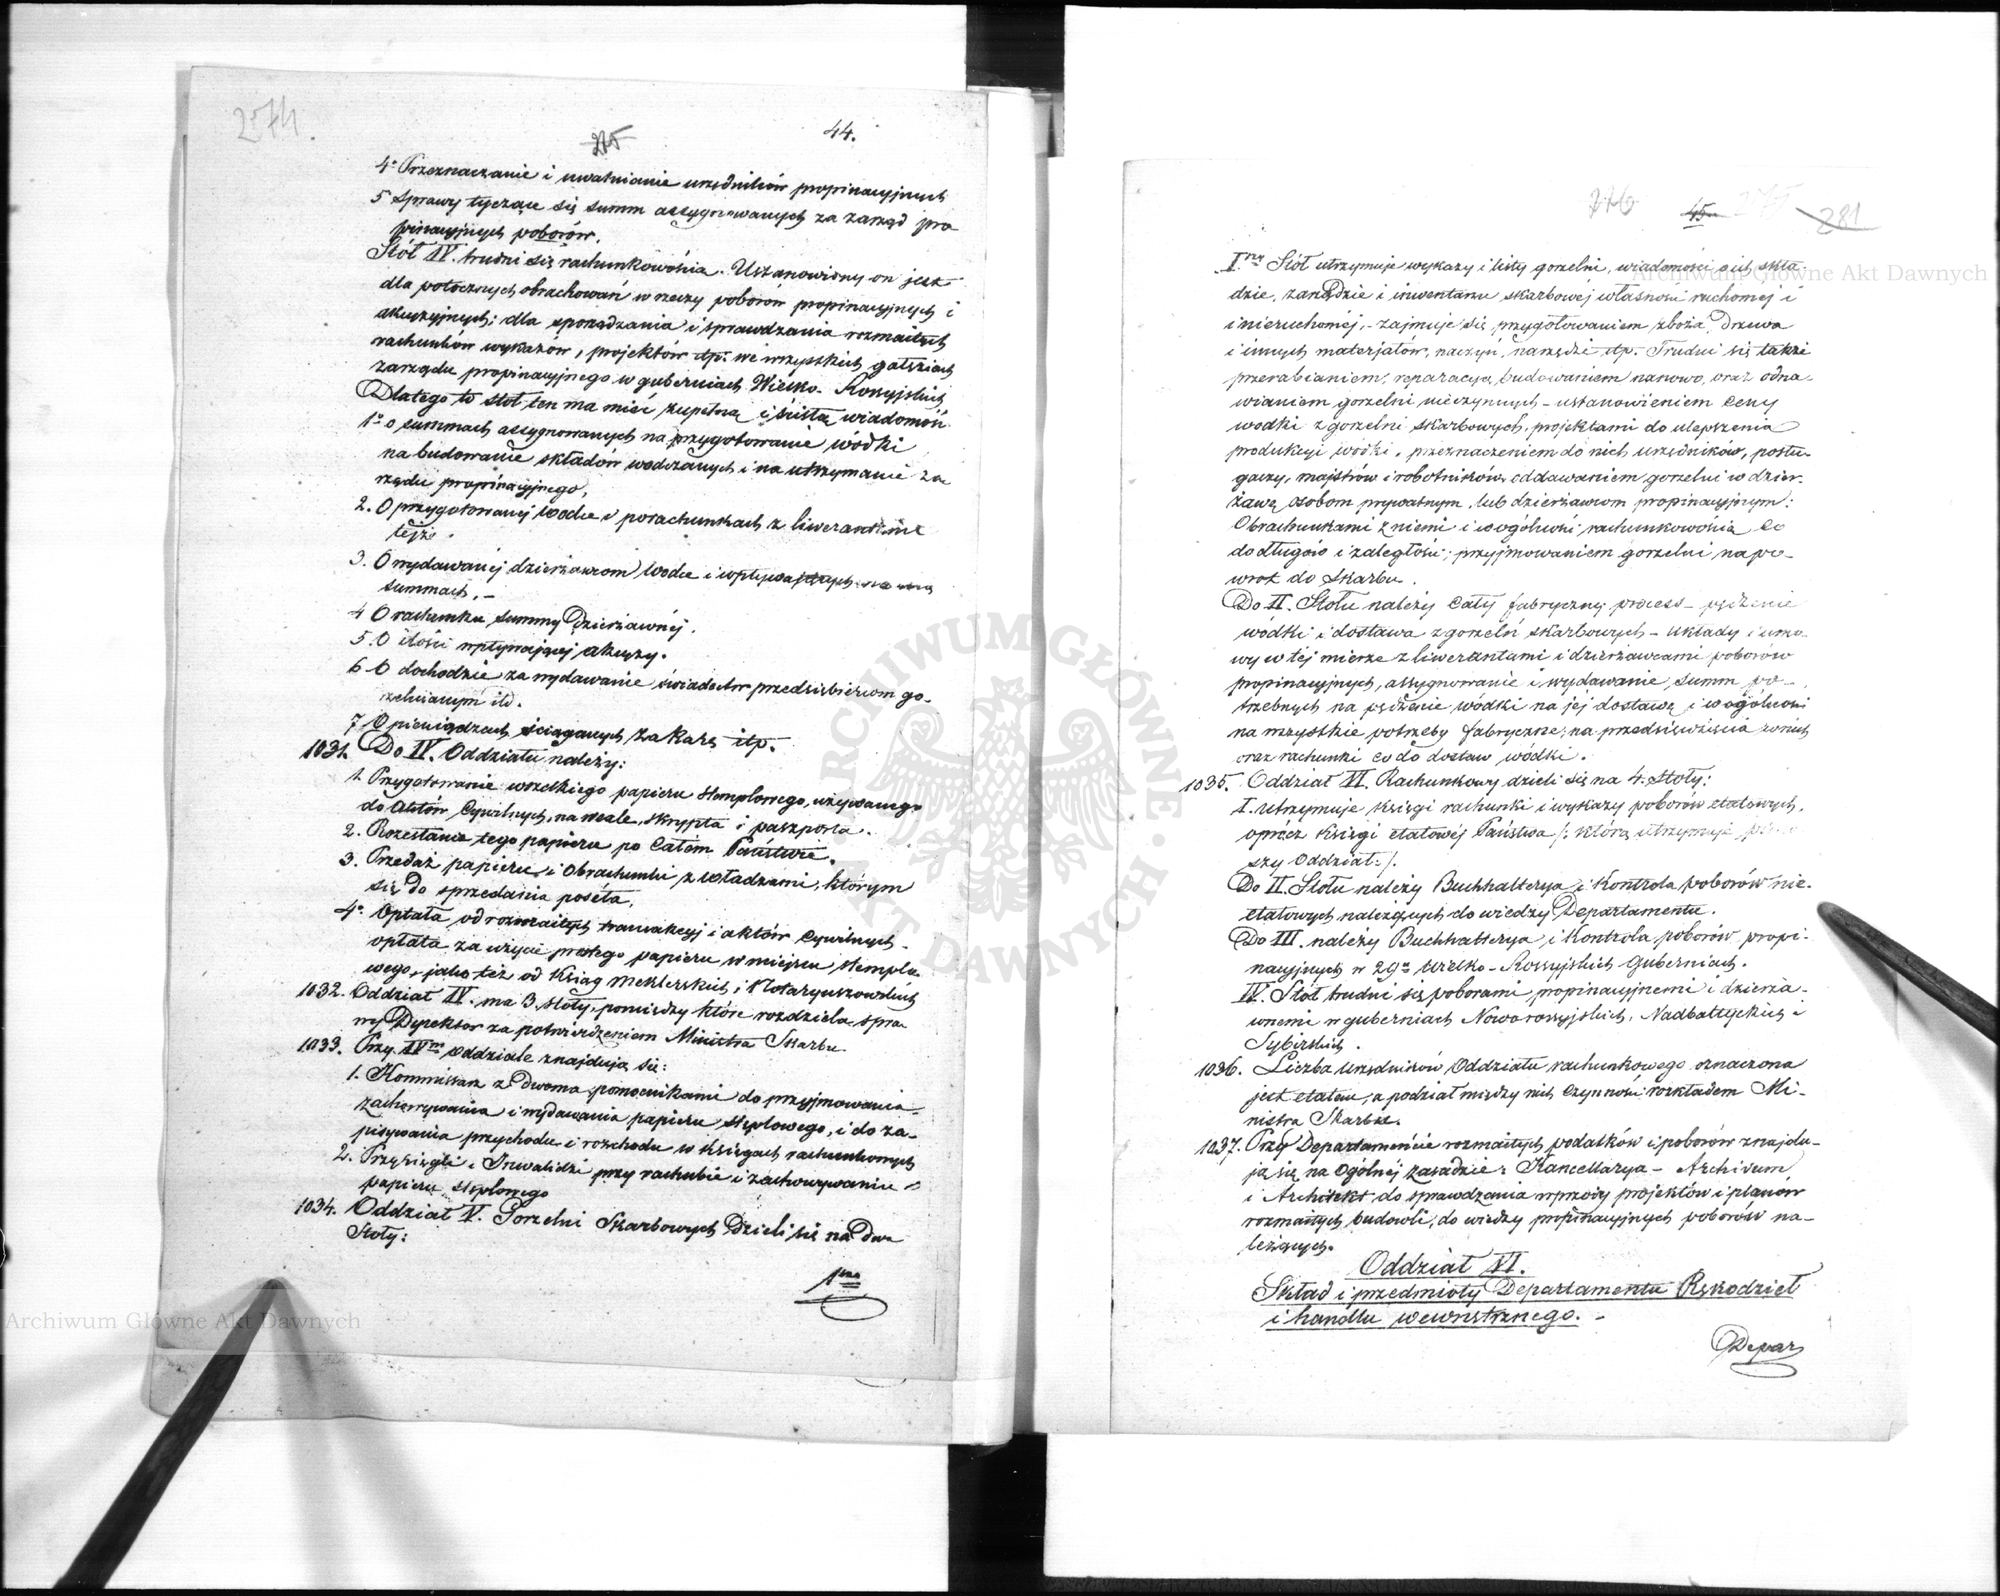 274.
275
44.
4° Przeznaczanie i uwalnianie urzędników propinacyjnych
5 Sprawy tyczące się summ assygnowanych za zarząd pro
pinacyjnych poborów.
Stół IV. trudni się rachunkowością. Ustanowiony on jest
dla potocznych obrachowań w rzeczy poborów propinacyjnych i
akcyzyjnych; dla sporządzania i sprawdzania rozmaitych
rachunków wykazów, projektów itp. we wszystkich gałęziach
zarządu propinacyjnego w guberniach Wielko-Rossyjskich
Dlatego to stół ten ma mieć zupełną i ścisłą wiadomość
1° o summach assygnowanych na przygotowanie wódki
na budowanie składów wódczanych i na utrzymanie za
rządu propinacyjnego.
2. O przygotowanej wodce i porachunkach z liwerantami
tejże.
3. O wydawanej dzierżawcom wodce i wpływających za nią
summach. –
4 O rachunku summy Dzierżawnej.
5. O ilości wpływającej akcyzy.
6 O dochodzie za wydawanie świadectw przedsiębiercom go-
rzelnianym itd.
7 O pieniądzach ściąganych za karę itp.
1031. Do IV. Oddziału należy:
1. Przygotowanie wszelkiego papieru stemplowego, używanego
do Aktów Cywilnych, na wexle, skrypta i paszporta.
2. Rozesłanie tego papieru po całem Państwie.
3. Przedaż papieru i Obrachunki z władzami, którym
się do sprzedania poséła.
4° Opłata od rozmaitych transakcyj i aktów Cywilnych
opłata za użycie prostego papieru w miejscu stemplo
wego, jako też od Ksiąg Meklerskich i Notaryuszowskich
1032. Oddział IV. ma 3 stoły, pomiędzy które rozdziela spra
wy Dyrektor za potwierdzeniem Ministra Skarbu
1033. Przy IVm Oddziale znajdują się:
1. Kommissarz z Dwoma pomocnikami do przyjmowania
zachowywania i wydawania papieru stęplowego, i do za-
pisywania przychodu i rozchodu w księgach rachunkowych
2. Przysięgli i Inwalidzi przy rachubie i zachowywaniu
papieru stęplowego
1034. Oddział V. Gorzelni Skarbowych Dzieli się na Dwa
Stoły:
1szy
276
45
275
281
Iszy Stół utrzymuje wykazy i listy gorzelni, wiadomości o ich skła
dzie, zarządzie i inwentarzu skarbowéj własności ruchoméj i
i nieruchoméj, – zajmuje się przygotowaniem zboża, Drzewa
i innych materjałów, naczyń, narzędzi itp. Trudni się także
przerabianiem, reparacyą, budowaniem nanowo, oraz odna-
wianiem gorzelni nieczynnych – ustanowieniem Ceny
wodki z gorzelni skarbowych, projektami do ulepszenia
produkcyi wódki, przeznaczeniem do nich urzędników, posłu-
gaczy, majstrów i robotników, oddawaniem gorzelni w dzier-
żawę osobom prywatnym, lub dzierżawcom propinacyjnym:
Obrachunkami z niemi i w ogólności rachunkowością co
do długów i zaległości; przyjmowaniem gorzelni napo-
wrót do Skarbu.
Do II. Stołu należy cały fabryczny process – pędzenie
wódki i dostawa z gorzelń skarbowych – układy i umo
wy w téj mierze z liwerantami i dzierżawcami poborów
propinacyjnych, assygnowanie i wydawanie, summ po-
trzebnych na pędzenie wódki na jéj dostawę i w ogólności
na wszystkie potrzeby fabryczne; na przedsięwzięcia
oraz rachunki co do dostaw wódki.
1035. Oddział VI. Rachunkowy dzieli się na 4. stoły:
I. utrzymuje Księgi rachunki i wykazy poborów etatowych,
oprócz Księgi etatowéj Państwa /: którą utrzymuje pierw
szy Oddział :/.
Do II. Stołu należy Buchhalterya i Kontrola poborów nie-
etatowych należących do wiedzy Departamentu.
Do III. należy Buchhalterya i Kontrola poborów propi-
nacyjnych w 29 Wielko-Rossyjskich Guberniach.
IV. Stół trudni się poborami propinacyjnemi i dzierża-
wnemi w guberniach Noworossyjskich, Nadbałtyckich i
Sybirskich.
1036. Liczba urzędników Oddziału rachunkowego oznaczona
jest etatem, a podział między nich Czynności rozkładem Mi-
nistra Skarbu.
1037. Przy Departamencie rozmaitych podatków i poborów znajdu-
ją się na ogólnéj zasadzie: Kancellarya – Archiwum
i Architekt do sprawdzania wprzódy projektów i planów
rozmaitych budowli, do wiedzy propinacyjnych poborów na-
leżących.
Oddział VI.
Skład i przedmioty Departamentu Rękodzieł
i handlu wewnętrznego. –
Depar
ARCHIWUM GŁÓWNE AKT DAWNYCH
Archiwum Główne Akt Dawnych
Archiwum Główne Akt Dawnych